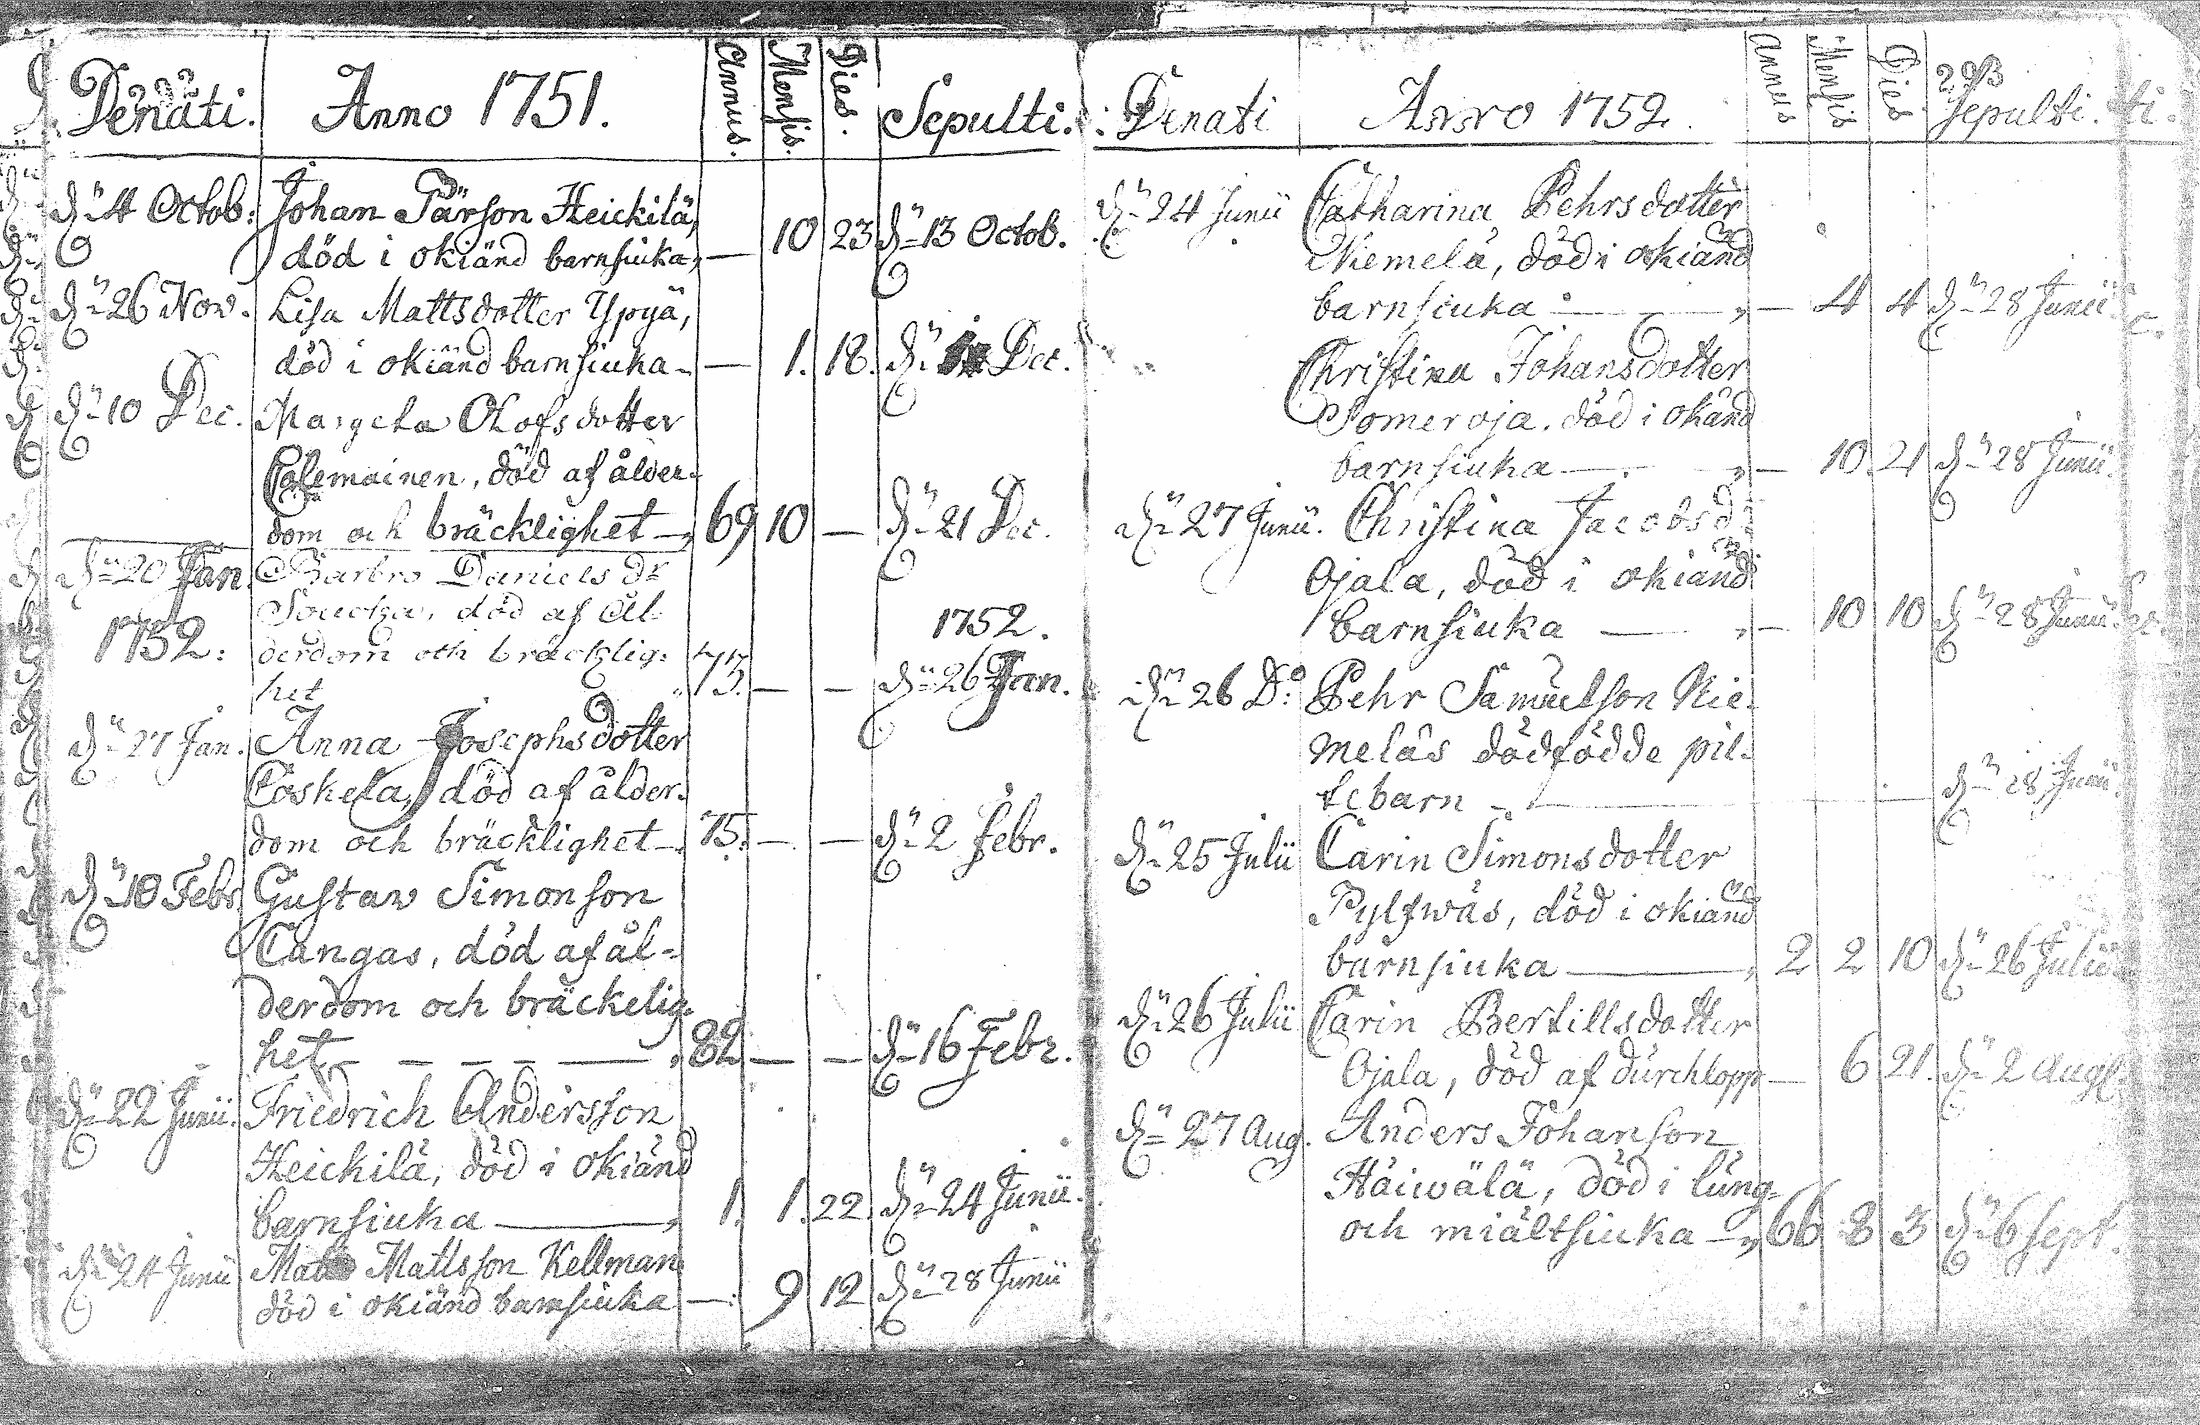 292
Denati. Anno 1751. Annus. Mensis. Dies. Sepulti.
dn 4 Octob: Johan Pärson Heickilä,
död i okiänd barnsiuka, — 10 23 dn 13 Octob.
dn 26 Nov. Lisa Mattsdotter Ypyä,
död i okiänd barnsiuka — — 1. 18. dn Dec.
dn 10 Dec. Margeta Olofsdotter
död af ålder-
dom och bräcklighet — 69 10 — dn 21 Dec.
dn 20 Jan. Barbro Daniels dr
död af ål-
1752: derdom och bräcklig- 1752.
het 73. — — dn 26 Jan.
dn 27 Jan. Anna Josephsdotter
Coskela, död af ålder-
dom och bräcklighet — 75. — — dn 2 Febr.
dn 10 Febr. Gustaw Simonson
Cangas, död af ål-
derdom och bräckelig-
het — — — — 82 — — dn 16 Febr.
dn 22 Junii. Friedrich Andersson
Heickilä, död i okiänd
barnsiuka — 1. 1. 22 dn 24 Junii.
dn 24 Junii Mattsson Kellman
död i okiänd barnsiuka — 9 12 dn 28 Junii
293
Denati Anno 1752. Annus Mensis Dies Sepulti.
dn 24 Junii Catharina Pehrsdotter
Niemelä, död i okiänd
barnsiuka — — 4 4 dn 28 Junii
Christina Johansdotter
Someroja. död i okänd
barnsiuka — — 10. 21 dn 28 Junii.
dn 27 Junii. Christina Jacobs d:
Ojala, död i okiänd
barnsiuka — — 10 10 dn 28 Junii.
dn 26 D:o Pehr Samuelson Nie-
meläs dödfödde pil-
tebarn — dn 28 Junii.
dn 25 Julii Carin Simonsdotter
Pylfwäs, död i okiänd
barnsiuka — 2 2 10 dn 26 Julii
dn 26 Julii Carin Bertillsdotter
Ojala, död af durchlopp — 6 21. dn 2 Aug.
dn 27 Aug. Anders Johanson
Häiwälä, död i lung-
och miältsiuka — 66 8 3 dn 6 Sept.